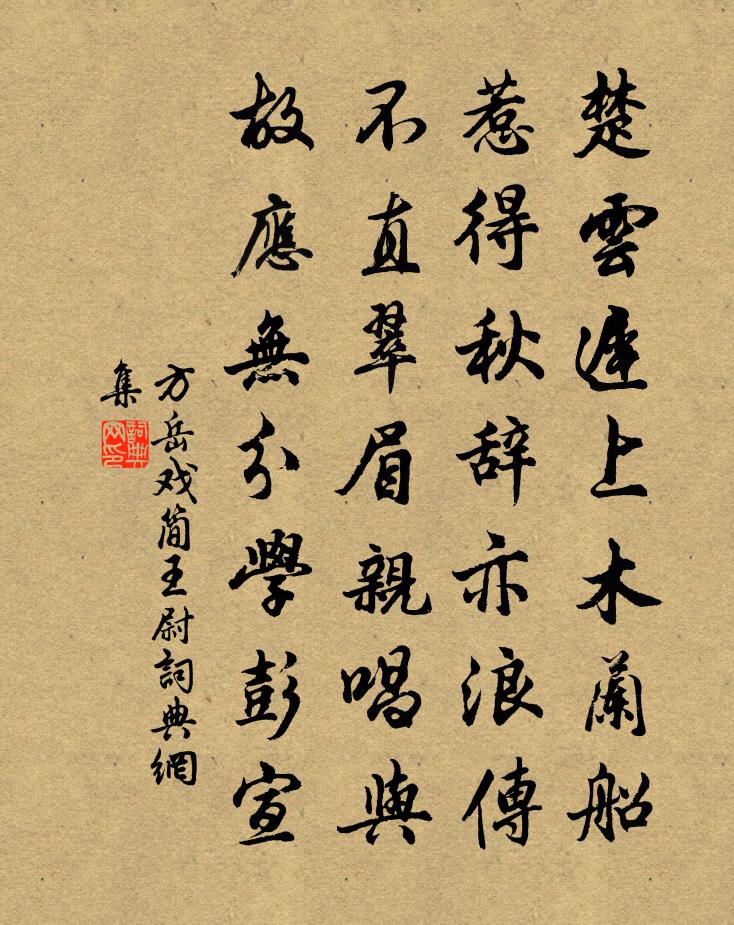 楚雲遲上木蘭船
惹得秋辞亦浪傳
不直翠眉親唱與
故應無分學彭宣
方岳戏簡王尉詞典網
集
詞典
网印